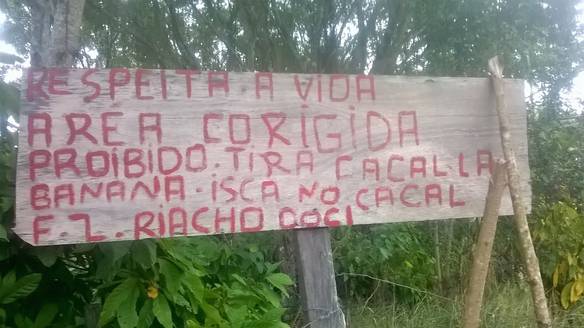 RESPEITA A ViDA
AREA CORIGIDA
PROIBIDO. TIRA CACAL. LA
BANANA. ISCA NO CACAL
F. Z. RIACHO DOCI